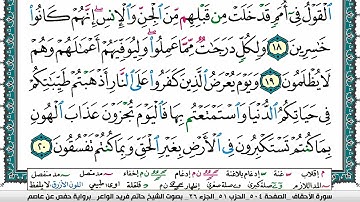 ٱلْقَوْلُ فِىٓ أُمَمٍ قَدْ خَلَتْ مِن قَبْلِهِم مِّنَ ٱلْجِنِّ وَٱلْإِنسِ ۖ إِنَّهُمْ كَانُوا۟
خَٰسِرِينَ ١٨ وَلِكُلٍّ دَرَجَٰتٌ مِّمَّا عَمِلُوا۟ ۖ وَلِيُوَفِّيَهُمْ أَعْمَٰلَهُمْ وَهُمْ
لَا يُظْلَمُونَ ١٩ وَيَوْمَ يُعْرَضُ ٱلَّذِينَ كَفَرُوا۟ عَلَى ٱلنَّارِ أَذْهَبْتُمْ طَيِّبَٰتِكُمْ
فِى حَيَاتِكُمُ ٱلدُّنْيَا وَٱسْتَمْتَعْتُم بِهَا فَٱلْيَوْمَ تُجْزَوْنَ عَذَابَ ٱلْهُونِ
بِمَا كُنتُمْ تَسْتَكْبِرُونَ فِى ٱلْأَرْضِ بِغَيْرِ ٱلْحَقِّ وَبِمَا كُنتُمْ تَفْسُقُونَ ٢٠
سورة الأحقاف الصفحة ٥٠٤ الحزب ٥١ الجزء ٢٦ بصوت الشيخ حاتم فريد الواعر برواية حفص عن عاصم